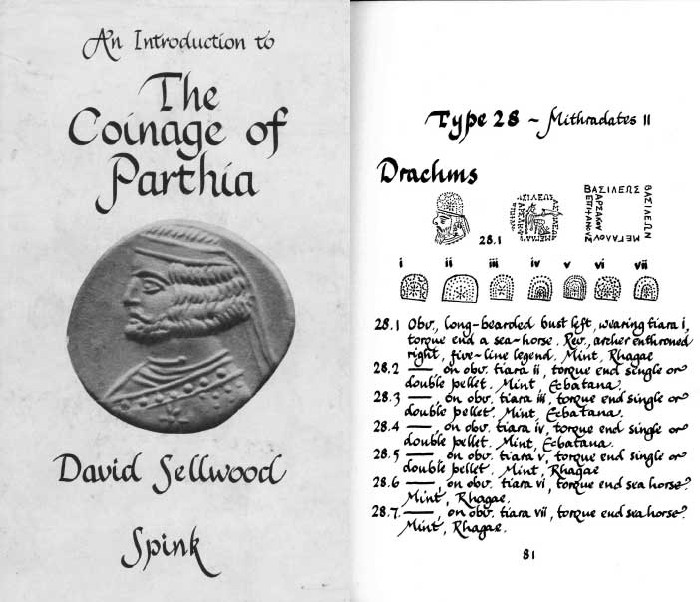 An Introduction to
The
Coinage of
Parthia
David Sellwood
Spink
Type 28 ~ Mithradates II
Drachms
28.1
ΒΑΣΙΛΕΩΣ
ΑΡΣΑΚΟΥ
ΕΠΙΦΑΝΟΥΣ
ΜΕΓΑΛΟΥ
ΒΑΣΙΛΕΩΝ
i ii iii iv v vi vii
28.1 Obv., long-bearded bust left, wearing tiara i,
torque end a sea-horse. Rev., archer enthroned
right, five-line legend. Mint, Rhagae
28.2 —, on obv. tiara ii, torque end single or
double pellet. Mint, Ecbatana.
28.3 —, on obv. tiara iii, torque end single or
double pellet. Mint, Ecbatana.
28.4 —, on obv. tiara iv, torque end single or
double pellet. Mint, Ecbatana.
28.5 —, on obv. tiara v, torque end single or
double pellet. Mint, Rhagae
28.6 —, on obv. tiara vi, torque end sea horse?
Mint, Rhagae.
28.7. —, on obv. tiara vii, torque end sea horse?
Mint, Rhagae.
81